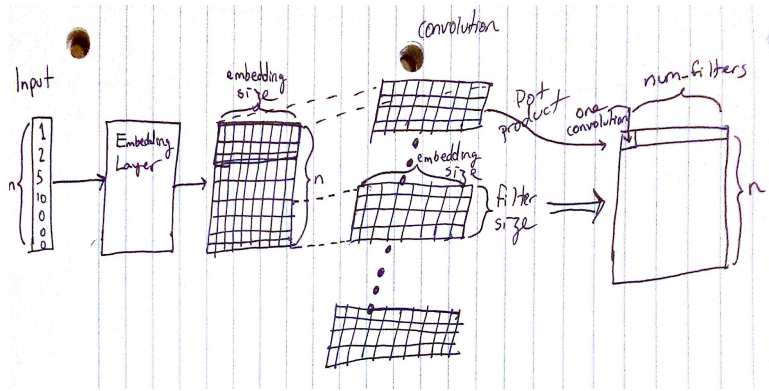 Input
n
1
2
5
10
0
0
0
Embedding
Layer
embedding
size
n
convolution
embedding
size
filter
size
Dot
product
one
convolution
num_filters
n